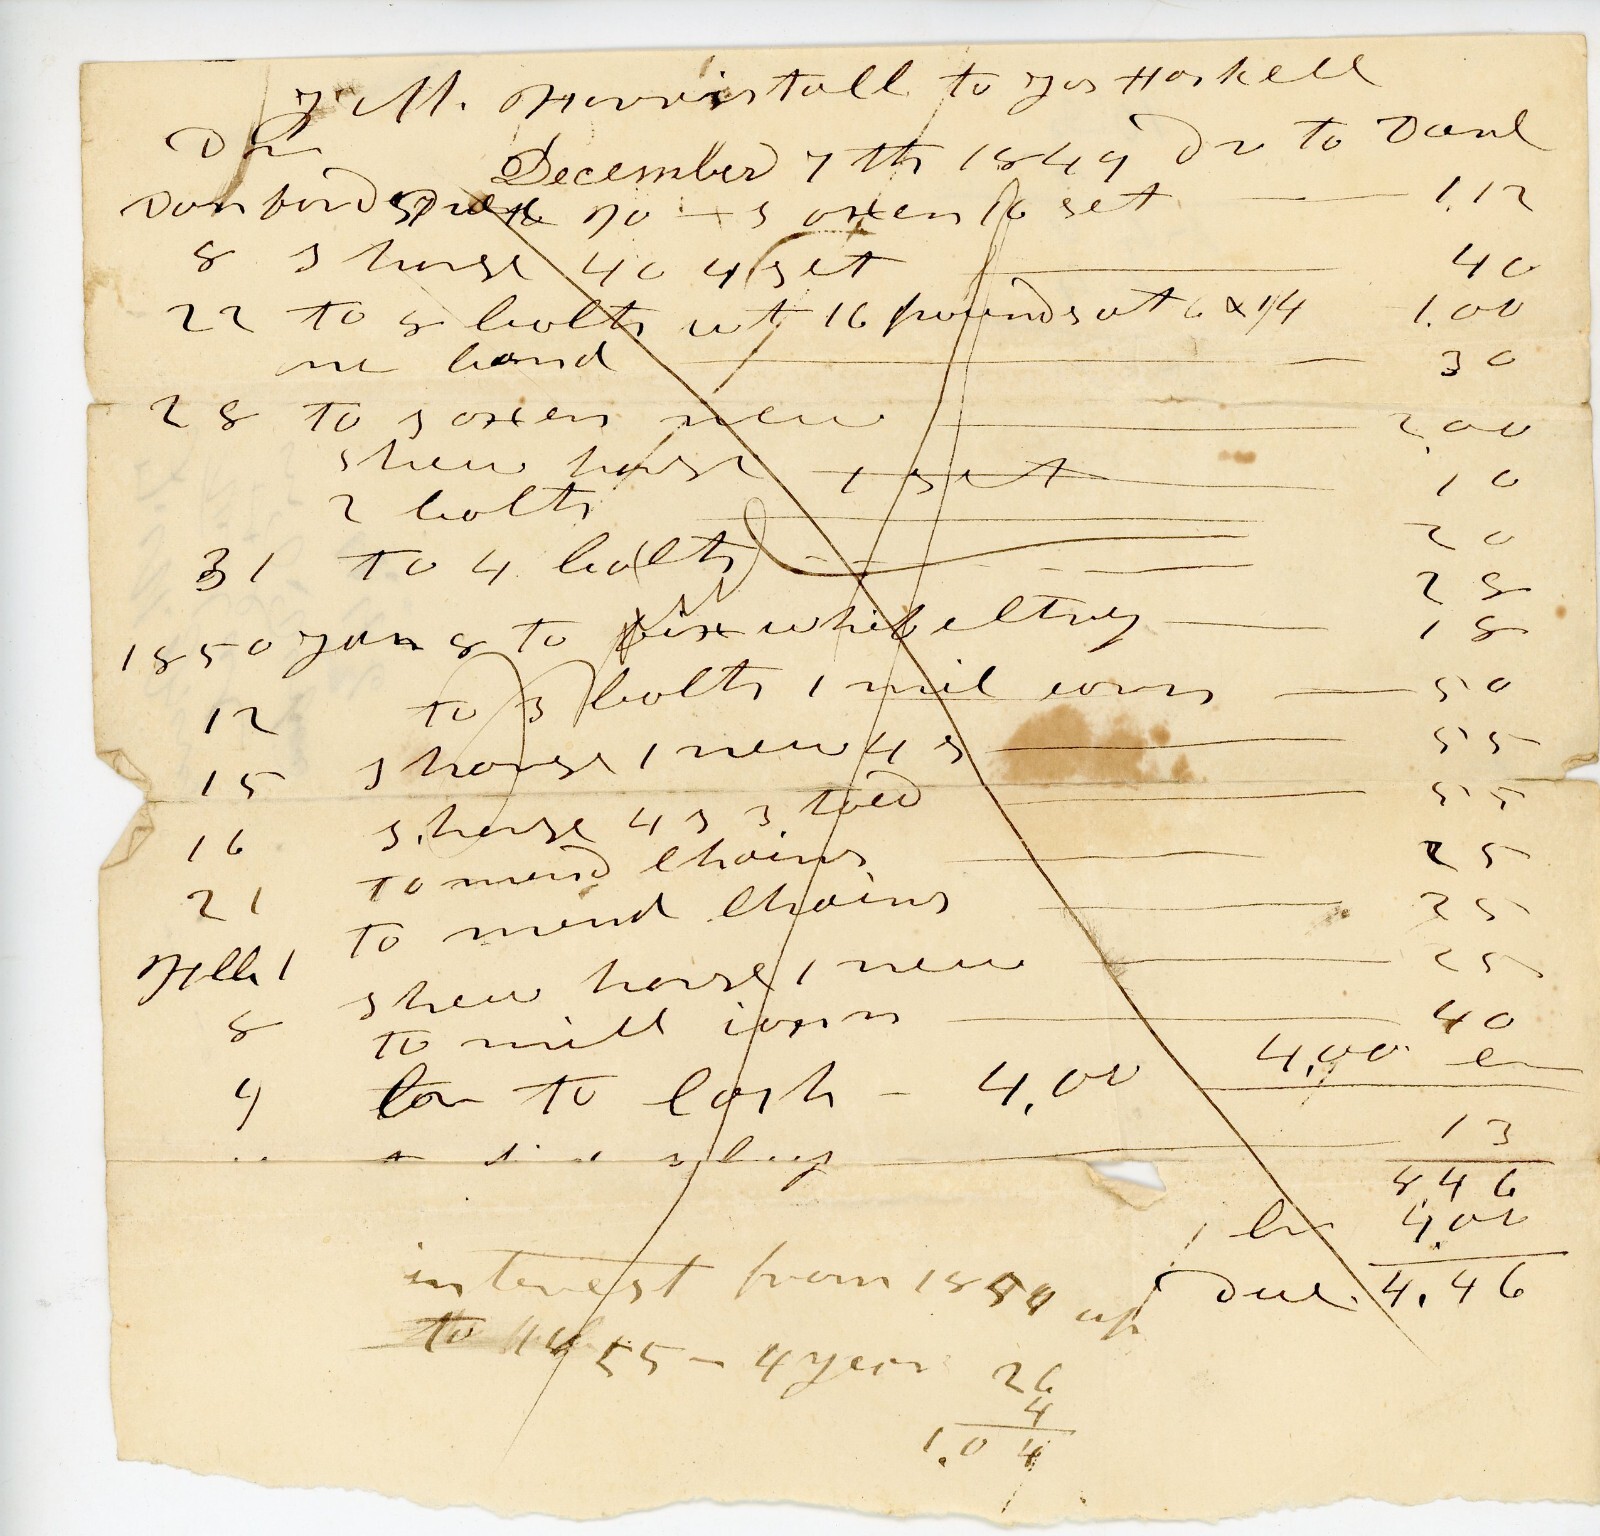 M. to Jos Haskell
Dr
December 7th 1849 Dr to Danl
Danford 70 - s oxen 16 set 1.12
8 s horse 40 4 set 40
22 to 8 bolts wt 16 pounds at 6 x 1/4 1.00
one band 30
28 to s oxen new 2.00
shew horse 1 set 10
2 bolts 20
31 to 4 bolts 28
1850 Jan 8 to fix whifeltrey 18
12 to 3 bolts 1 mil iorn 50
15 s horse 1 new 4 s 55
16 s horse 4 s 3 toed 55
to mend chains 25
21 to mend chains 25
Feb 1 shew horse 1 new 25
8 to mill iorn 40
4.00 cr
9 to cash - 4.00
13
8 4 6
by cr 4.00
Due 4.46
interest from 18
to 55 - 4 year
26
4
1.04